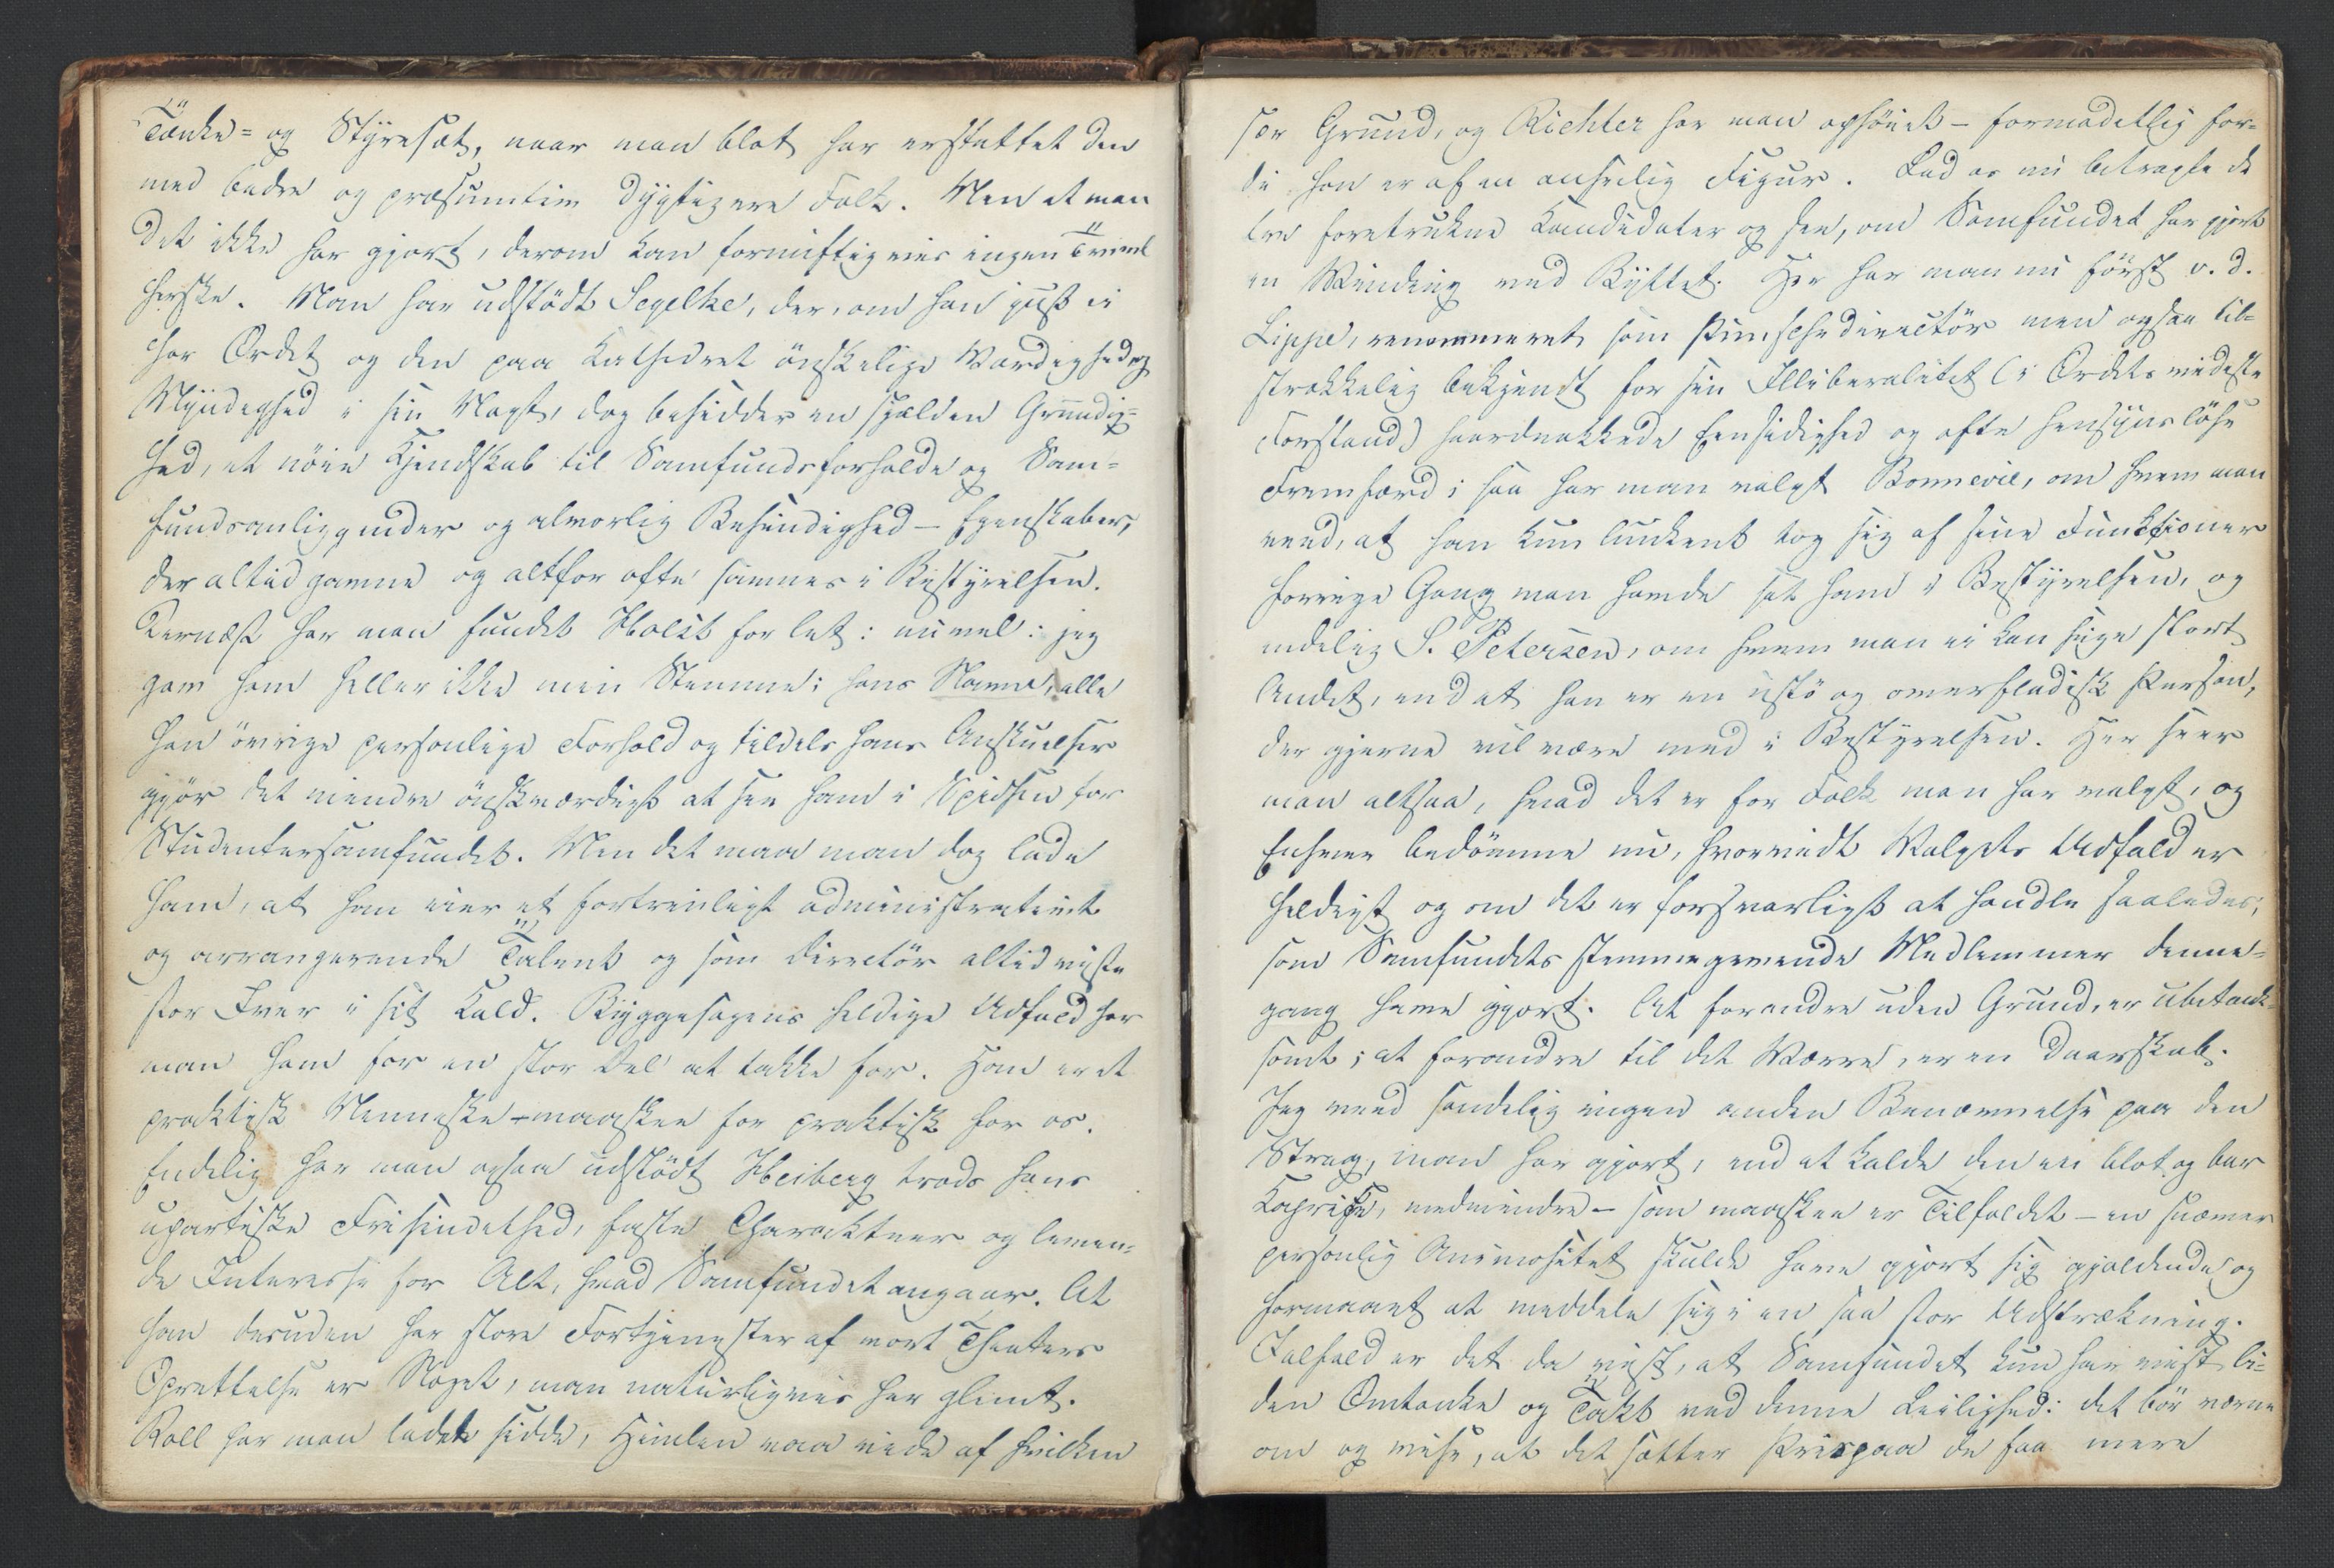 Tænke- og Styresæt, naar man blot har erstattet den
med bedre og præsumtiv dygtigere Folk. Men at man
det ikke har gjort, derom kan fornuftigviis ingen Tvivl
herske. Man har udstödt Segelke, der, om han just ei
har Ordet og den paa Kathedret önskelige Værdighed og
Myndighed i sin Magt, dog besidder en sjælden Grundig-
hed, et nöie Kjendskab til Samfundsforholde og Sam-
fundsanliggender og alvorlig Besindighed – Egenskaber,
der altid gavne og altfor ofte savnes i Bestyrelsen.
Dernæst har man fundet Holst for let: nuvel: jeg
gav ham heller ikke min Stemme; hans Navne, alle
han övrige personlige Forhold og tildels hans Anskuelser
gjör det mindre önskværdigt at see ham i Spidsen for
Studentersamfundet. Men det maa man dog lade
ham, at han eier et fortrinligt administrativt
og arrangerende Talent og som Directör altid viste
stor Iver i sit Kald. Byggesagens heldige Udfald har
man ham for en stor Del at takke for. Han er et
praktisk Menneske – maaskee for praktisk for os.
Endelig har man ogsaa udstödt Heiberg trods hans
upartiske Frisindethed, faste Charakteer og leven-
de Interesse for Alt, hvad Samfundet angaar. At
han desuden har store Fortjenester af vort Theaters
Oprettelse er Noget, man naturligviis har glemt.
Roll har man ladet sidde, Himlen maa vide af hvilken
sær Grund, og Richter har man ophöiet – formodetlig for-
di han er af en anseelig Figur. Lad os nu betragte de
tre foretrukne Kandidater og see, om Samfundet har gjort
en Vinding ved Byttet. Her har man nu först v. d.
Lippe, renommeret som Punschedirectör men ogsaa til-
strækkelig bekjendt for sin Illiberalitet (i Ordets videste
Forstand) haardnakkede Eensidighed og ofte hensynslöse
Fremfærd; saa har man valgt Bonnevie, om hvem man
veed, at han kun lunkent tog sig af sine Funktioner
forrige Gang man havde sat ham i Bestyrelsen, og
endelig S. Petersen, om hvem man ei kan sige stort
Andet, end at han er en ustö og overfladisk Person,
der gjerne vil være med i Bestyrelsen. Her seer
man altsaa, hvad det er for Folk man har valgt, og
Enhver bedömme nu, hvorvidt Valgets Udfald er
heldigt og om det er forsvarligt at handle saaledes,
som Samfundets stemmegivende Medlemmer denne-
gang have gjort. At forandre uden Grund, er ubetænk-
somt; at forandre til det Værre, er en Daarskab.
Jeg veed sandelig ingen anden Benævnelse paa den
Streg, man har gjort, end at kalde den en blot og bar
Kaprise, medmindre – som maaskee er Tilfældet – en snæver
personlig Animositet skulde have gjort sig gjældende og
formaaet at meddele sig i en saa stor Udstrækning.
Ialfald er det da vist, at Samfundet kun har viist li-
den Omtanke og Takt ved denne Leilighed: det bör værne
om og vise, at det sætter Priis paa de faa mere